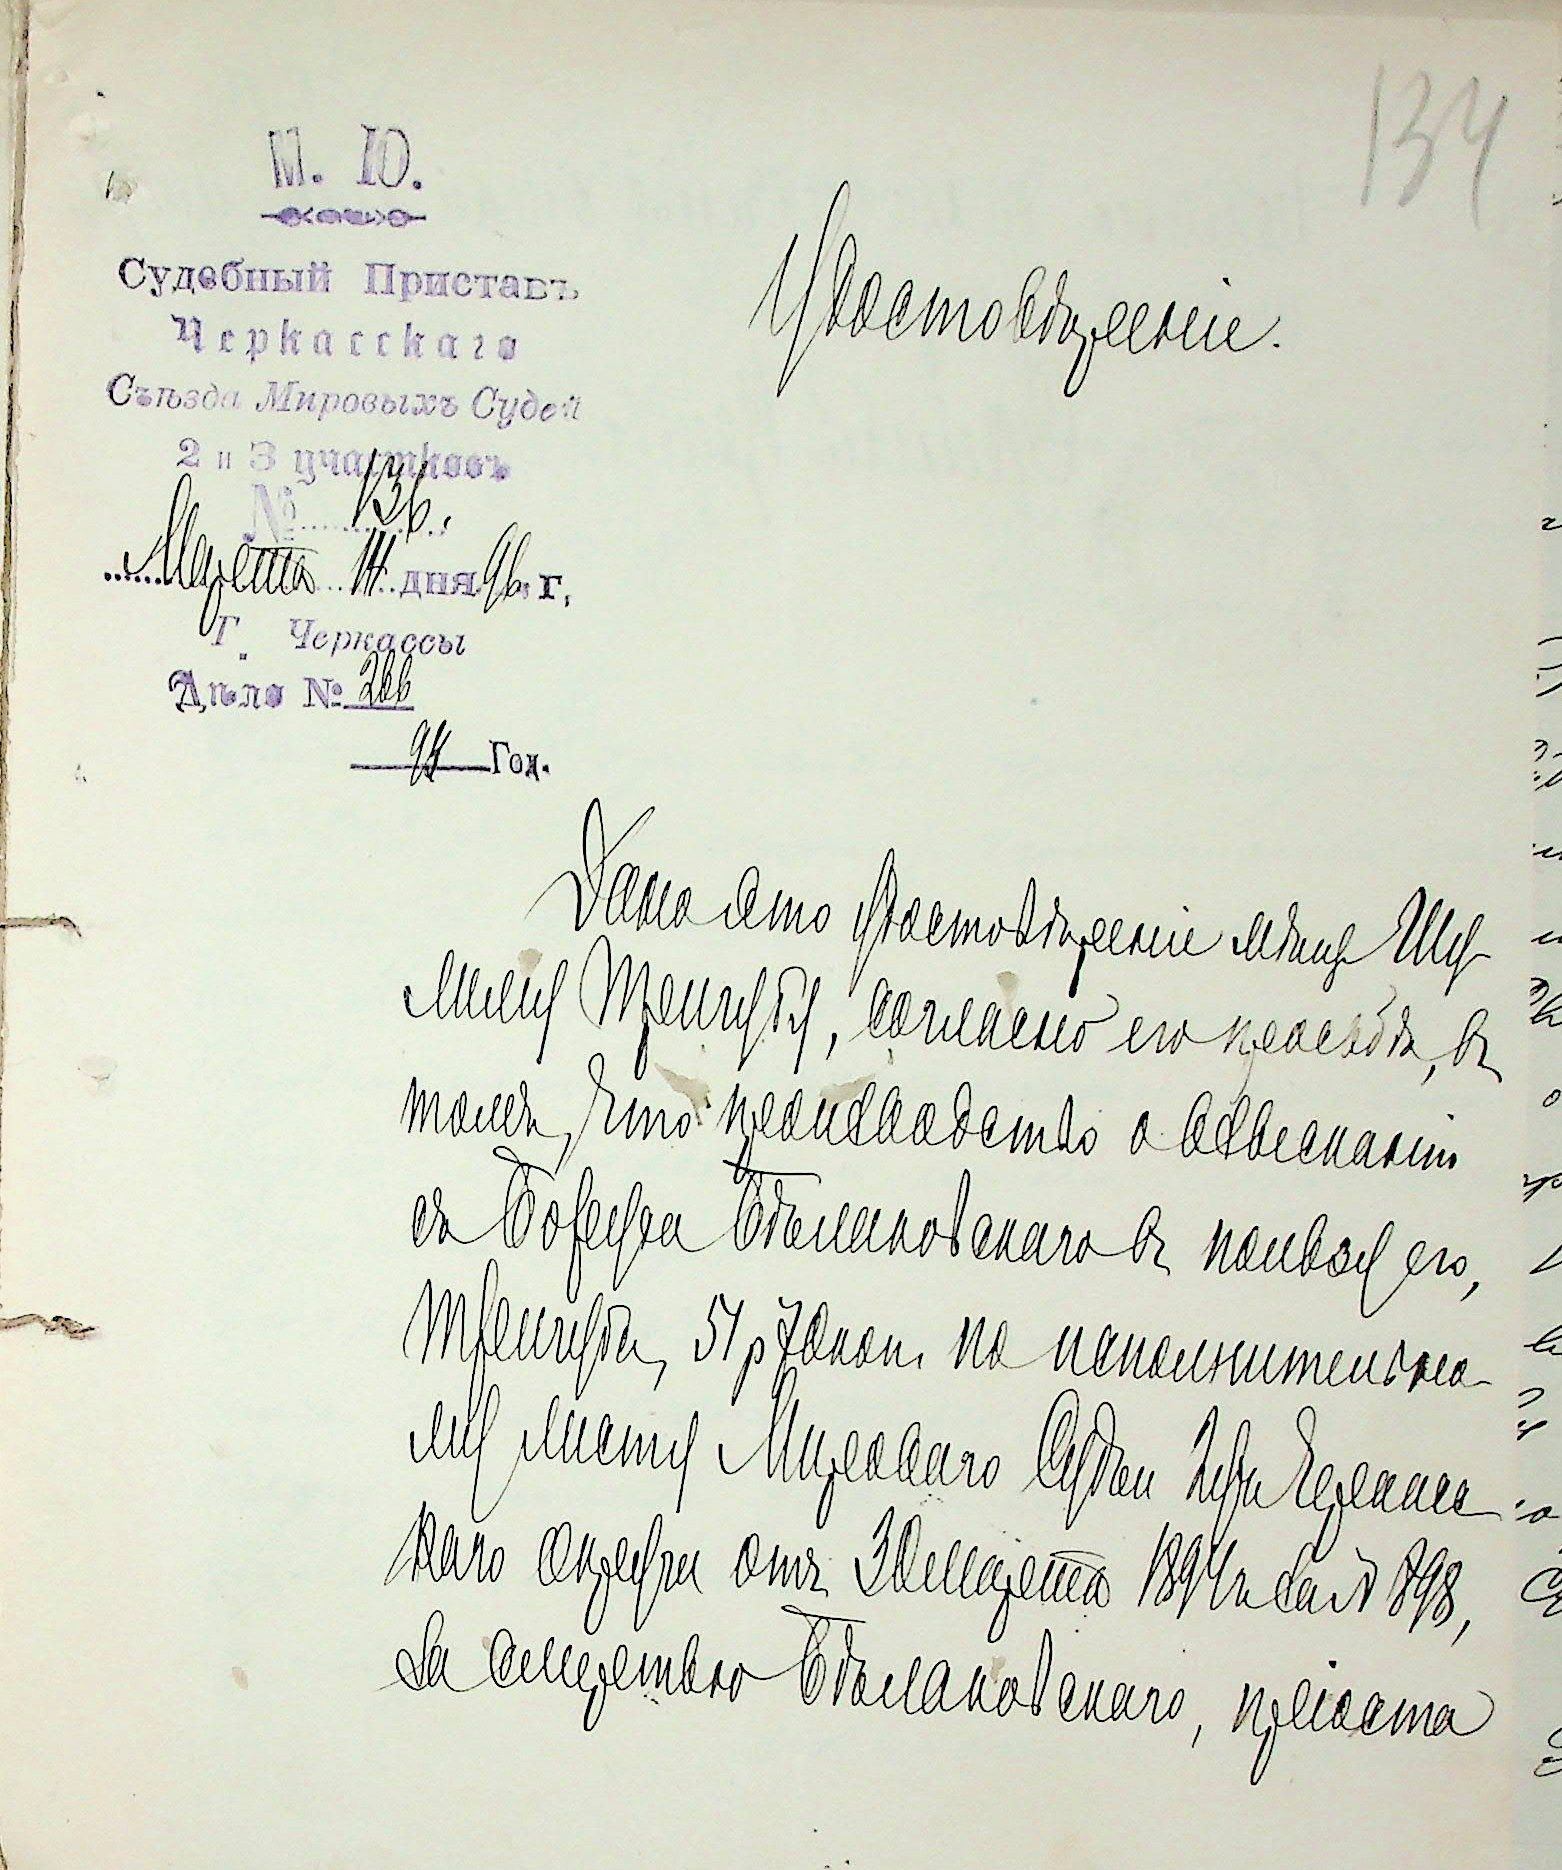 134
М. Ю.
Судебный Приставъ
Черкасскаго
Съѣзда Мировыхъ Судей
2 и 3 участковъ
№ 136.
Марта 14 дня 96 г.
Г. Черкассы
Дѣло № 266
94 Год.
Удостовѣреніе.
Дано это удостовѣреніе мѣщ. Шу-
лилу Трейгубу, согласно его просьбѣ, въ
томъ, что производство о взысканіи
съ Боруха Бѣлаковскаго въ пользу его,
Трейгуба, 51 р 70 коп. по исполнительно-
му листу Мироваго Судьи 2 уч. Черкасс
каго округа отъ 30 Марта 1894 г. за № 898,
за смертью Бѣлаковскаго, пріоста